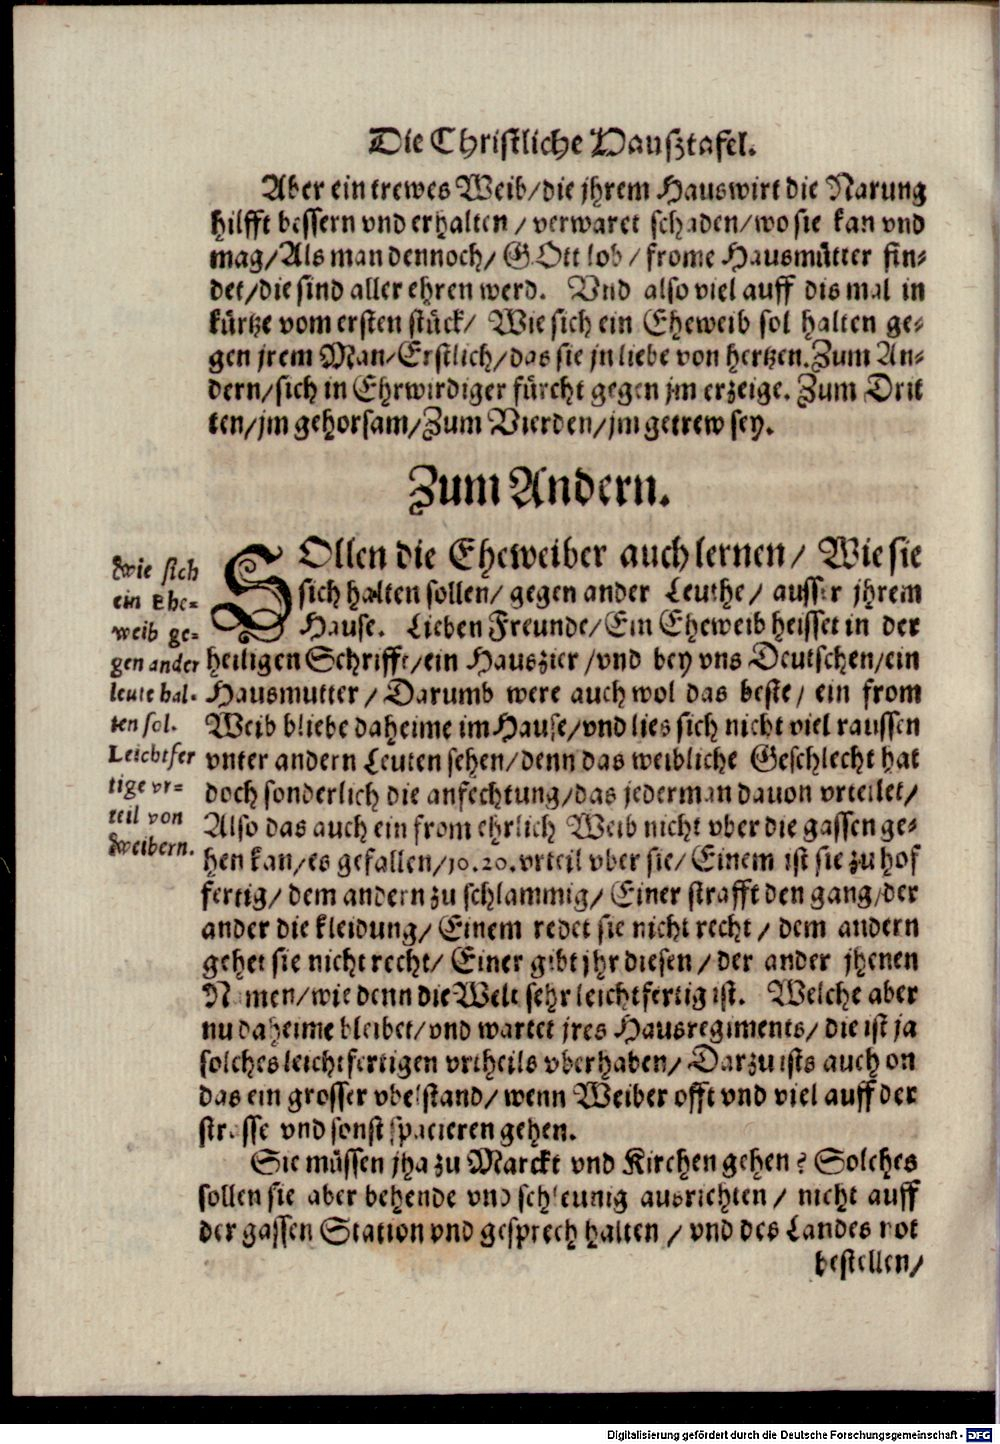 Die Christliche Haußtafel.
Aber ein trewes Weib/die jhrem Hauswirt die Narung
hilfft bessern vnd erhalten / verwaret schaden/wo sie kan vnd
mag/Als man dennoch/ GOtt lob / frome Hausmütter fin-
det/die sind aller ehren werd. Vnd also viel auff dis mal in
kürtze vom ersten stück/ Wie sich ein Eheweib sol halten ge-
gen jrem Man/Erstlich/das sie jn liebe von hertzen.Zum An-
dern/sich in Ehrwirdiger fürcht gegen jm erzeige. Zum Drit
ten/jm gehorsam/Zum Vierden/jm getrew sey.
Zum Andern.
SOllen die Eheweiber auch lernen/ Wie sie
sich halten sollen/ gegen ander Leuthe/ ausser jhrem
Hause. Lieben Freunde/Ein Eheweib heisset in der
heiligen Schrifft/ein Hauszier /vnd bey vns Deutschen/ein
Hausmutter / Darumb were auch wol das beste/ ein from
Weib bliebe daheime im Hause/vnd lies sich nicht viel raussen
vnter andern Leuten sehen/denn das weibliche Geschlecht hat
doch sonderlich die anfechtung/das jederman dauon vrteilet/
Also das auch ein from ehrlich Weib nicht vber die gassen ge-
hen kan/es gefallen/10.20.vrteil vber sie/ Einem ist sie zu hof
fertig/ dem andern zu schlammig/ Einer strafft den gang/der
ander die kleidung/ Einem redet sie nicht recht / dem andern
gehet sie nicht recht/ Einer gibt jhr diesen / der ander jhenen
Namen/wie denn die Welt sehr leichtfertig ist. Welche aber
nu daheime bleibet/vnd wartet jres Hausregiments/ die ist ja
solches leichtfertigen vrtheils vberhaben/ Darzu ists auch on
das ein grosser vbelstand/ wenn Weiber offt vnd viel auff der
strasse vnd sonst spacieren gehen.
Sie müssen jha zu Marckt vnd Kirchen gehen? Solches
sollen sie aber behende vnd schleunig ausrichten / nicht auff
der gassen Station vnd gesprech halten / vnd des Landes not
bestellen/
Wie sich
ein Ehe-
weib ge-
gen ander
leute hal-
ten sol.
Leichtfer
tige vr-
teil von
Weibern.
Digitalisierung gefördert durch die Deutsche Forschungsgemeinschaft - DFG